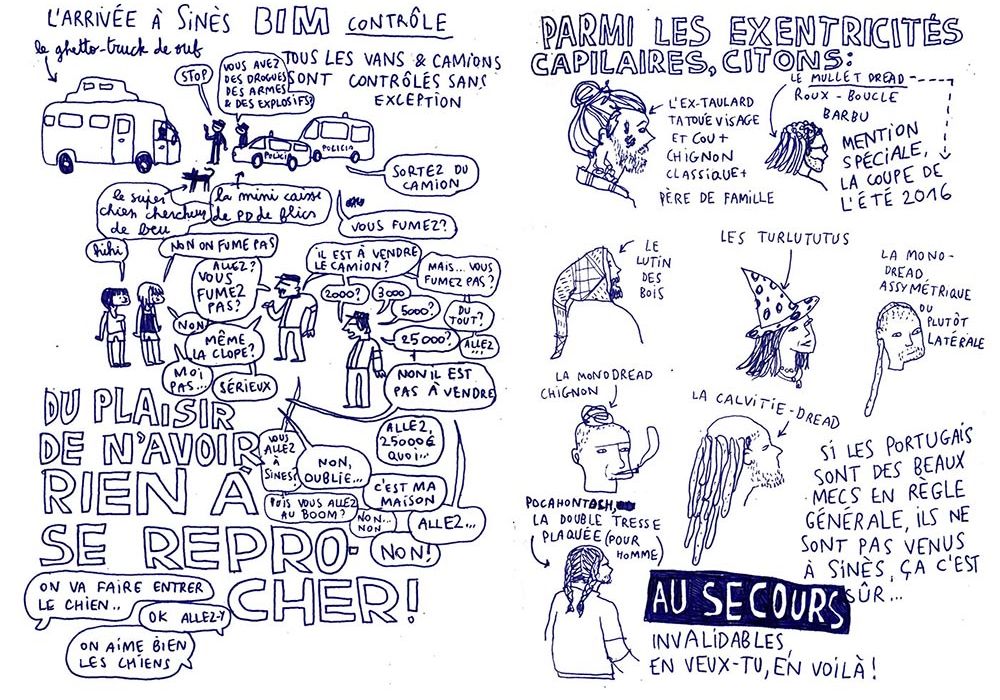 L'ARRIVÉE À SINÈS BIM CONTRÔLE
le ghetto-truck de ouf
STOP
VOUS AVEZ
DES DROGUES
DES ARMES
& DES EXPLOSIFS?
TOUS LES VANS & CAMIONS
SONT CONTRÔLÉS SANS
EXCEPTION
POLICIA
POLICIA
SORTEZ DU
CAMION
le super
chien chercheur
de beu
la mini caisse
de PD de flics
VOUS FUMEZ?
hihi
NON ON FUME PAS
ALLEZ?
VOUS
FUMEZ
PAS?
IL EST À VENDRE
LE CAMION?
MAIS... VOUS
FUMEZ PAS?
2000?
3000
5000?
DU
TOUT?
NON
MÊME
LA CLOPE?
25000?
ALLEZ
...
MOI
PAS...
SÉRIEUX
NON IL EST
PAS À VENDRE
DU PLAISIR
DE N'AVOIR
RIEN À
SE REPRO-
CHER!
VOUS
ALLEZ
À
SINES?
NON,
OUBLIE...
ALLEZ,
25000€
QUOI...
C'EST MA
MAISON
PUIS VOUS ALLEZ
AU BOOM?
NON...
NON
ALLEZ...
NON!
ON VA FAIRE ENTRER
LE CHIEN..
OK ALLEZ-Y
ON AIME BIEN
LES CHIENS
PARMI LES EXENTRICITÉS
CAPILAIRES, CITONS:
L'EX-TAULARD
TATOUÉ VISAGE
ET COU +
CHIGNON
CLASSIQUE +
PÈRE DE FAMILLE
LE MULLET DREAD
ROUX - BOUCLE
BARBU
MENTION
SPÉCIALE,
LA COUPE DE
L'ÉTÉ 2016
LE
LUTIN
DES
BOIS
LES TURLUTUTUS
LA MONO-
DREAD
ASSYMÉTRIQUE
OU
PLUTÔT
LATÉRALE
LA MONODREAD
CHIGNON
LA CALVITIE-DREAD
POCAHONTASH,
LA DOUBLE TRESSE
PLAQUÉE (POUR
HOMME)
SI LES PORTUGAIS
SONT DES BEAUX
MECS EN RÈGLE
GÉNÉRALE, ILS NE
SONT PAS VENUS
À SINÈS, ÇA C'EST
SÛR...
AU SECOURS
INVALIDABLES,
EN VEUX-TU, EN VOILÀ!